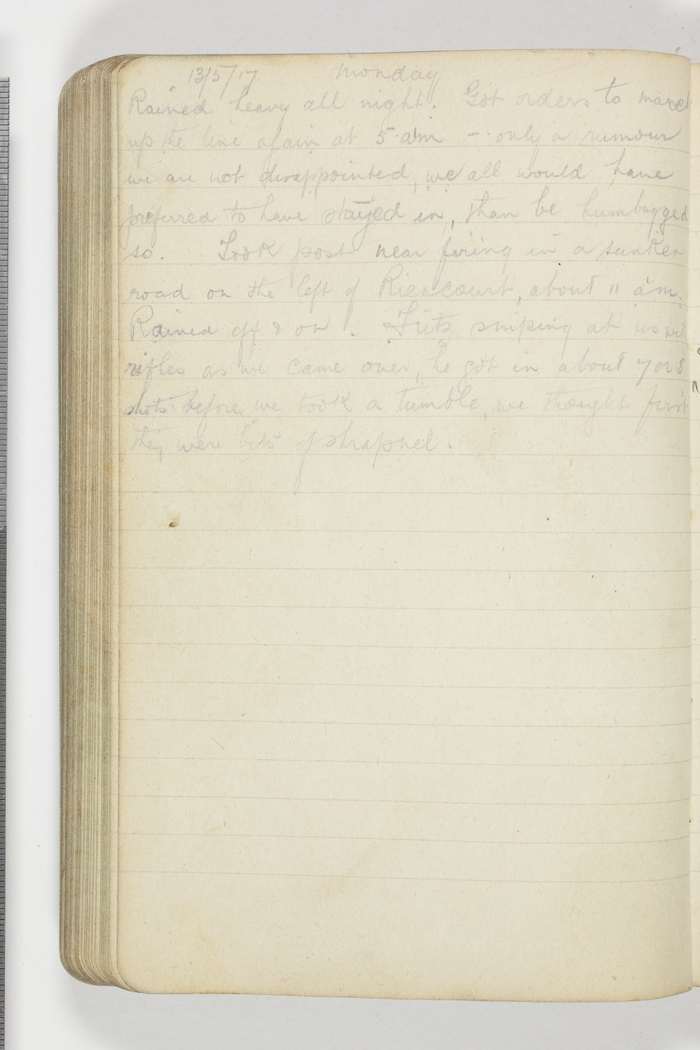 13/5/17 Monday
Rained heavy all night. Got orders to march
up the line again at 5 am - only a rumour
we are not disappointed, we all would have
preferred to have stayed in, than be humbugged
so. Took post near firing in a sunken
road on the left of Riencourt, about 11 am.
Rained off & on. Fritz sniping at us
rifles as we came over, he got in about
shots before we took a tumble, we thought first
they were bits of shrapnel.